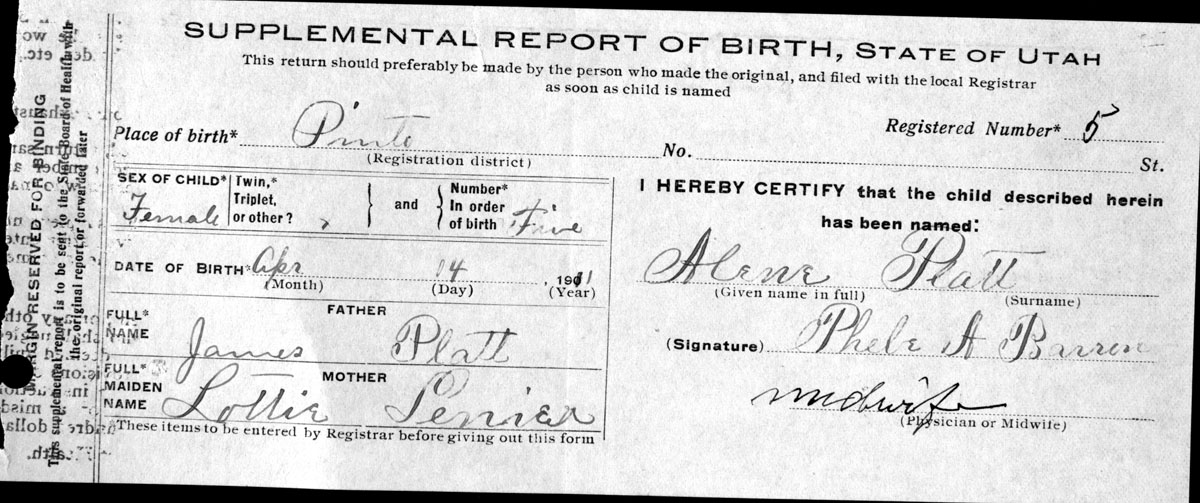 SUPPLEMENTAL REPORT OF BIRTH, STATE OF UTAH
This return should preferably be made by the person who made the original, and filed with the local Registrar
as soon as child is named
Place of birth* Pinto No. St.
(Registration district)
Registered Number* 5
SEX OF CHILD* Female
Twin,
Triplet,
or other?
and
Number*
In order
of birth Five
DATE OF BIRTH* Apr 14, 1911
(Month) (Day) (Year)
FATHER
FULL*
NAME James Platt
MOTHER
FULL*
MAIDEN
NAME Lottie
These items to be entered by Registrar before giving out this form
I HEREBY CERTIFY that the child described herein
has been named:
Alene Platt
(Given name in full) (Surname)
(Signature) Phebe A Barren
midwife
(Physician or Midwife)
MARGIN RESERVED FOR BINDING
This supplemental report is to be sent to the State Board of Health with
the original report or forwarded later